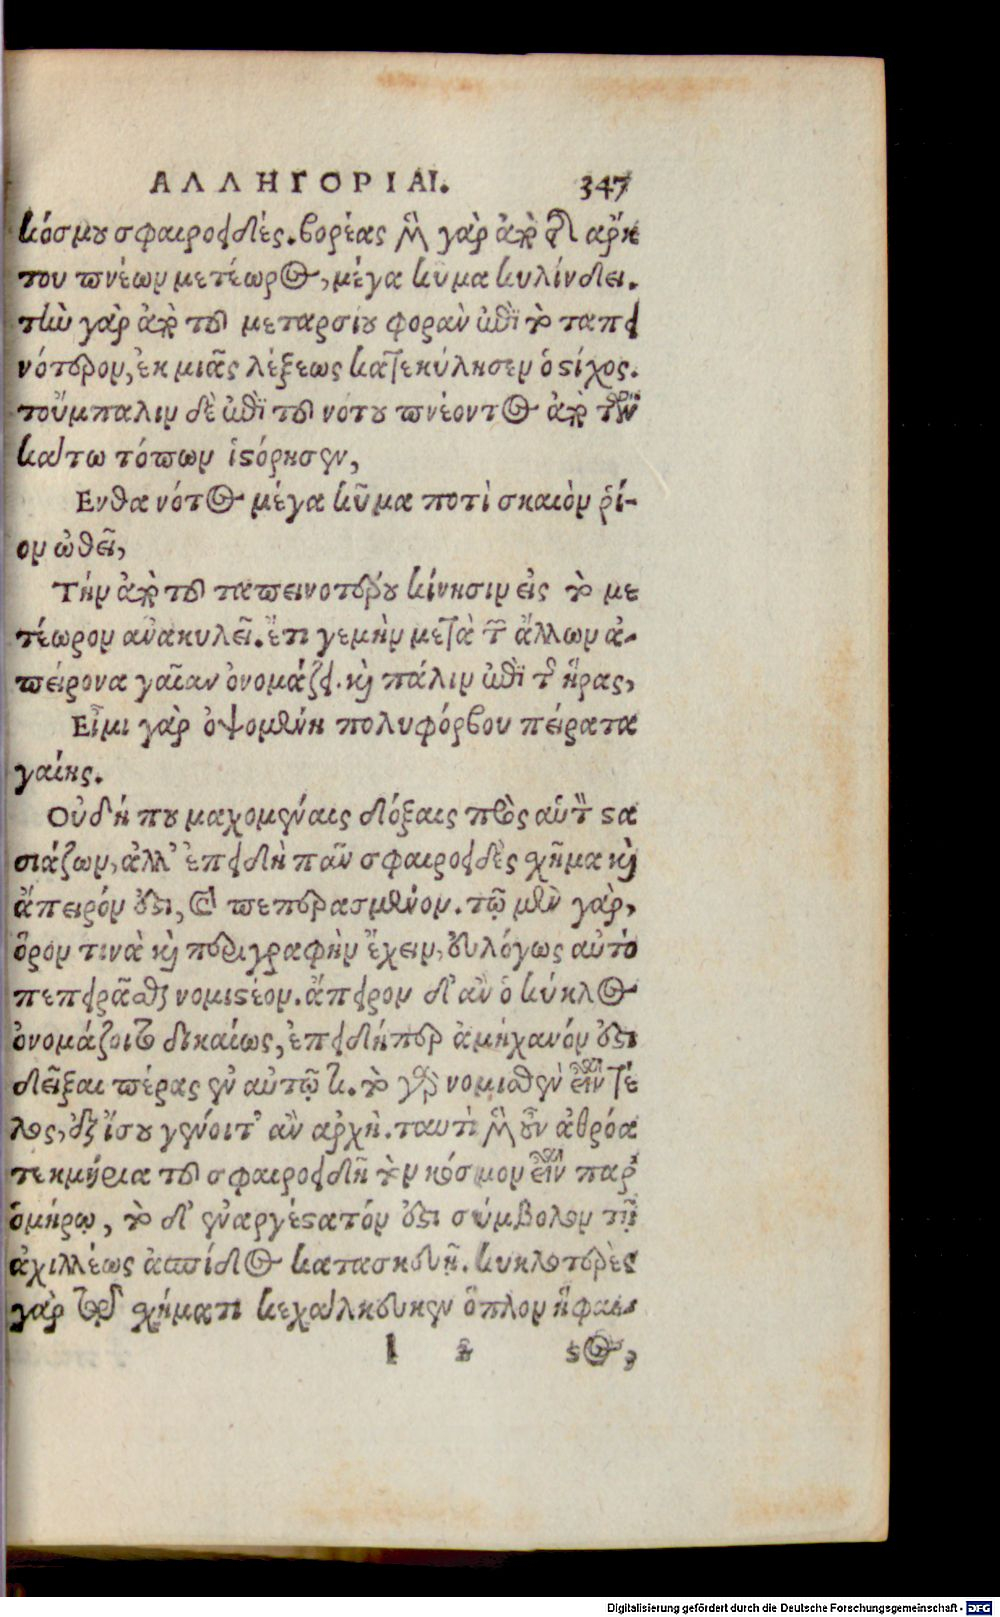 ΑΛΛΗΓΟΡΙΑΙ. 347
κόσμου σφαιροειδές. βορέας μὲν γὰρ ἀπὸ τῆς ἄρκ
του πνέων μετέωρος, μέγα κῦμα κυλίνδει.
τὴν γὰρ ἀπὸ τοῦ μεταρσίου φορὰν ἐπὶ τὸ ταπει
νότερον, ἐκ μιᾶς λέξεως κατεκύλησεν ὁ στίχος.
τοὔμπαλιν δὲ ἐπὶ τοῦ νότου πνέοντος ἀπὸ τῶν
κάτω τόπων ἱστόρησεν,
Ενθα νότος μέγα κῦμα ποτὶ σκαιὸν ῥί-
ον ὠθεῖ,
Τὴν ἀπὸ τοῦ ταπεινοτέρου κίνησιν εἰς τὸ με
τέωρον ἀνακυλεῖ. ἔτι γεμὴν μετὰ τῶν ἄλλων ἀ-
πείρονα γαῖαν ὀνομάζει. καὶ πάλιν ἐπὶ τῆς ἥρας,
Εἶμι γὰρ ὀψομένη πολυφόρβου πείρατα
γαίης.
Οὐ δή που μαχομέναις δόξαις πρὸς αὑτὸν στα
σιάζων, ἀλλ' ἐπειδὴ πᾶν σφαιροειδὲς σχῆμα καὶ
ἄπειρόν ἐστι, καὶ πεπερασμένον. τῷ μὲν γὰρ,
ὅρον τινὰ καὶ περιγραφὴν ἔχειν, εὐλόγως αὐτὸ
πεπειρᾶσθαι νομιστέον. ἄπειρον δ' ἂν ὁ κύκλος
ὀνομάζοιτο δικαίως, ἐπειδήπερ ἀμήχανόν ἐστι
δεῖξαι πέρας ἐν αὐτῷ τι. τὸ γὰρ νομισθὲν εἶναι τέ
λος, ἐξ ἴσου γένοιτ' ἂν ἀρχή. ταυτὶ μὲν οὖν ἀθρόα
τεκμήρια τοῦ σφαιροειδῆ τὸν κόσμον εἶναι παρ'
ὁμήρῳ, τὸ δ' ἐναργέστατόν ἐστι σύμβολον τῇ
ἀχιλλέως ἀσπίδος κατασκευῇ. κυκλοτερὲς
γὰρ τῷ σχήματι κεχάλκευκεν ὅπλον ἥφαι-
l 2 στος,
Digitalisierung gefördert durch die Deutsche Forschungsgemeinschaft - DFG